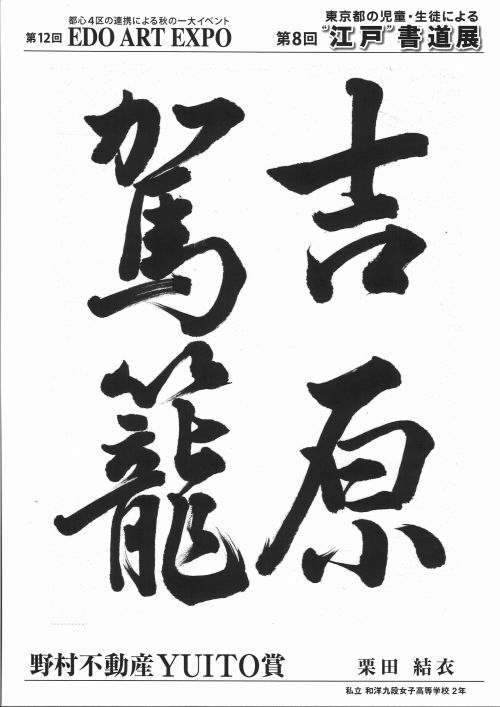 都心4区の連携による秋の一大イベント
第12回 EDO ART EXPO
東京都の児童・生徒による
第8回 “江戸”書道展
吉原
駕籠
野村不動産YUITO賞
栗田 結衣
私立 和洋九段女子高等学校 2年